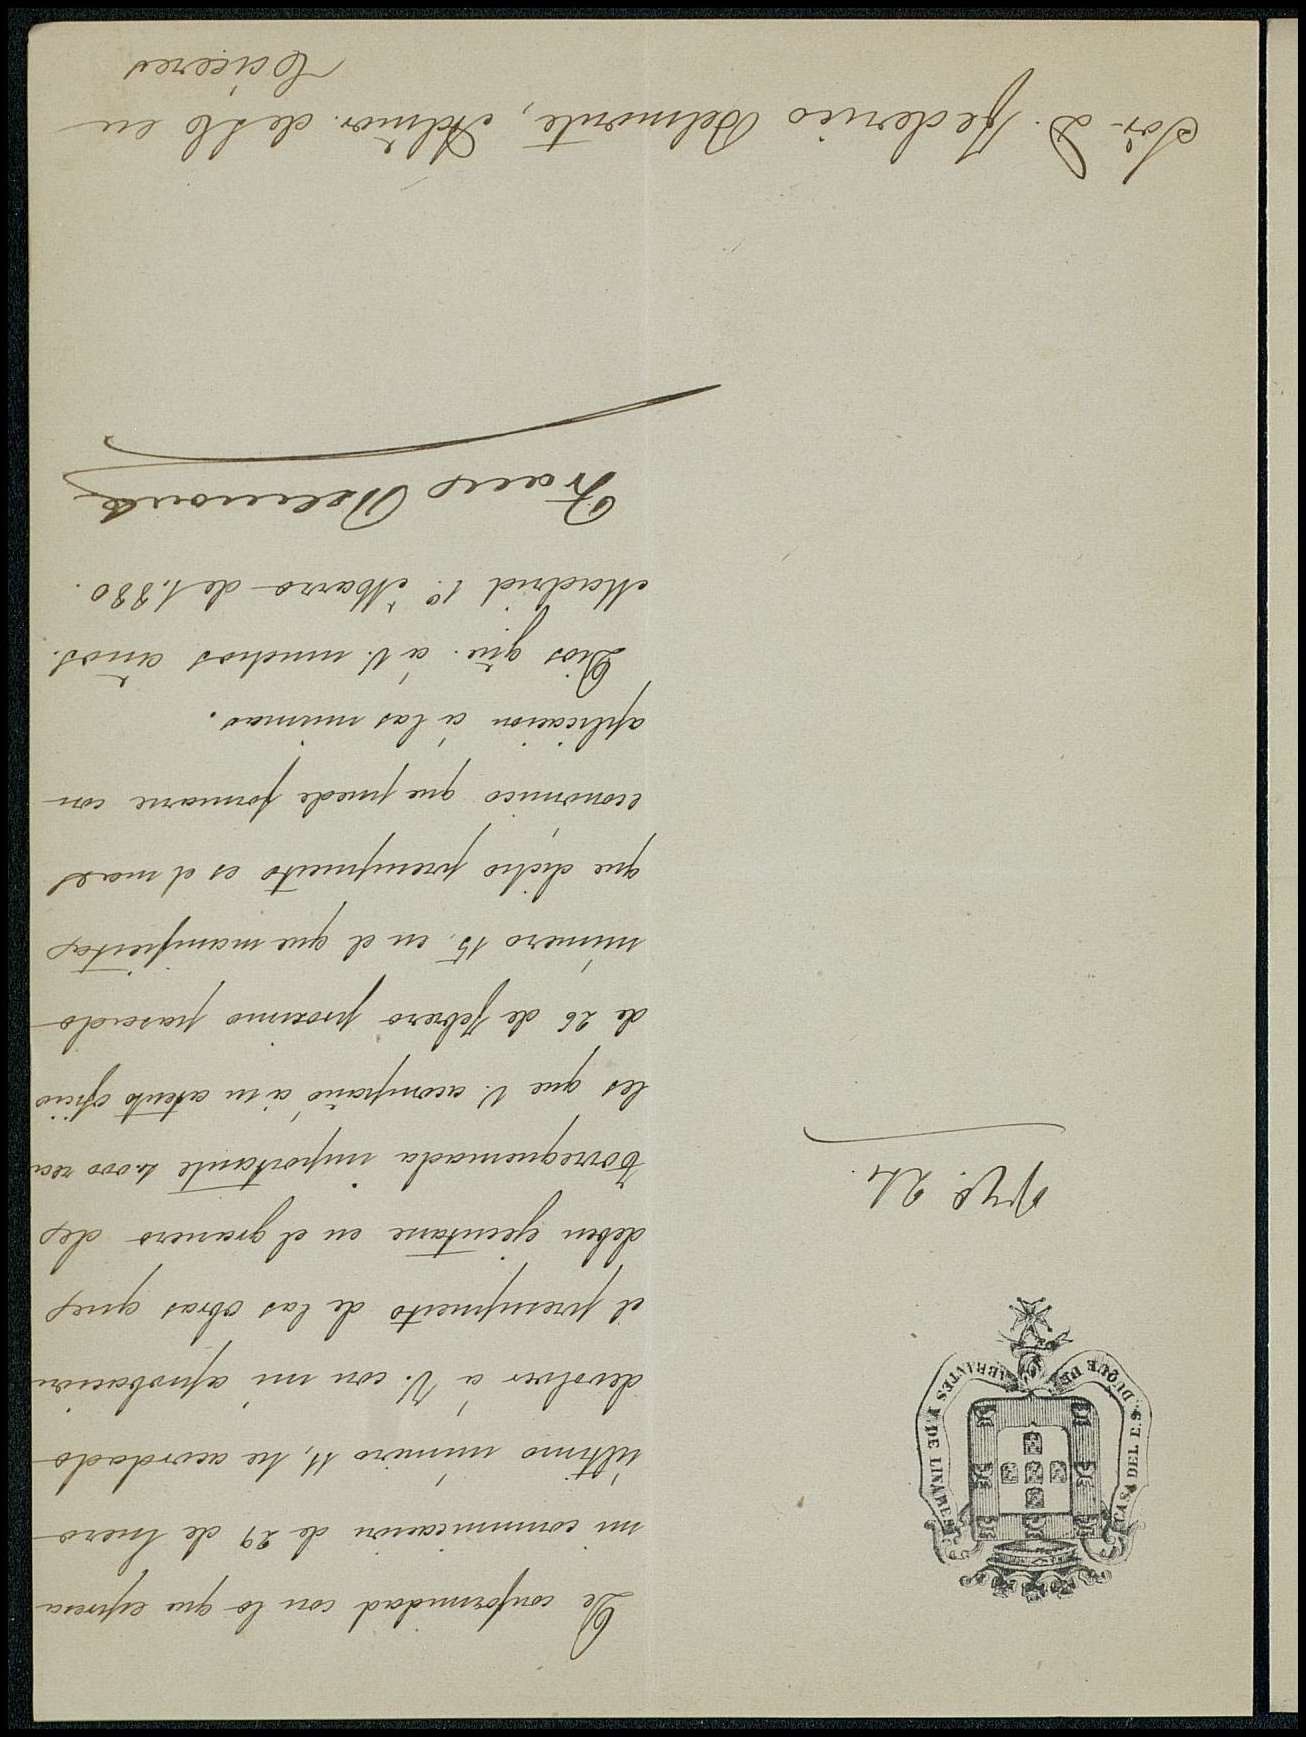 CASA DEL E.S. DUQUE DE ABRANTES Y DE LINARES
De conformidad con lo que espresa
mi comunicacion de 29 de Enero
último número 11, he acordado
devolver á V. con mi aprobacion
el presupuesto de las obras que
deben ejecutarse en el granero de
Torrequemada importante 2.000 rea
les que V. acompañó á su atento oficio
de 26 de Febrero proximo pasado
número 15, en el que manifiesta
que dicho presupuesto es el mas
económico que puede formarse con
aplicacion á las mismas.
Dios gũe. á V. muchos años.
Madrid 1º. Marzo de 1.880.
Franco Belmonte
24.
Sor. D. Federico Belmonte, Admor. de S.E. en
Cáceres